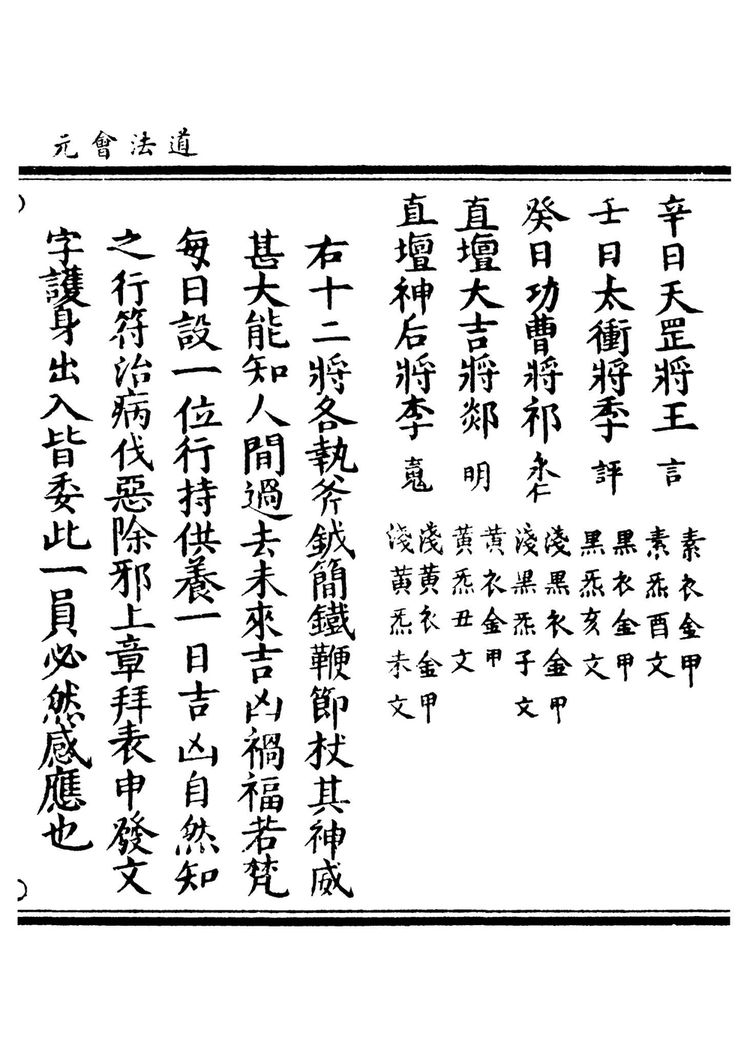 道法會元
辛日天罡將王言 素衣金甲素炁酉文
壬日太衝將季評 黑衣金甲黑炁亥文
癸日功曹將祁 淺黑衣金甲淺黑炁子文
直壇大吉將郯明 黃衣金甲黃炁丑文
直壇神后將李 淺黃衣金甲淺黃炁未文
右十二將各執斧鉞簡鐵鞭節杖其神威
甚大能知人間過去未來吉凶禍福若梵
每日設一位行持供養一日吉凶自然知
之行符治病伐惡除邪上章拜表申發文
字護身出入皆委此一員必然感應也